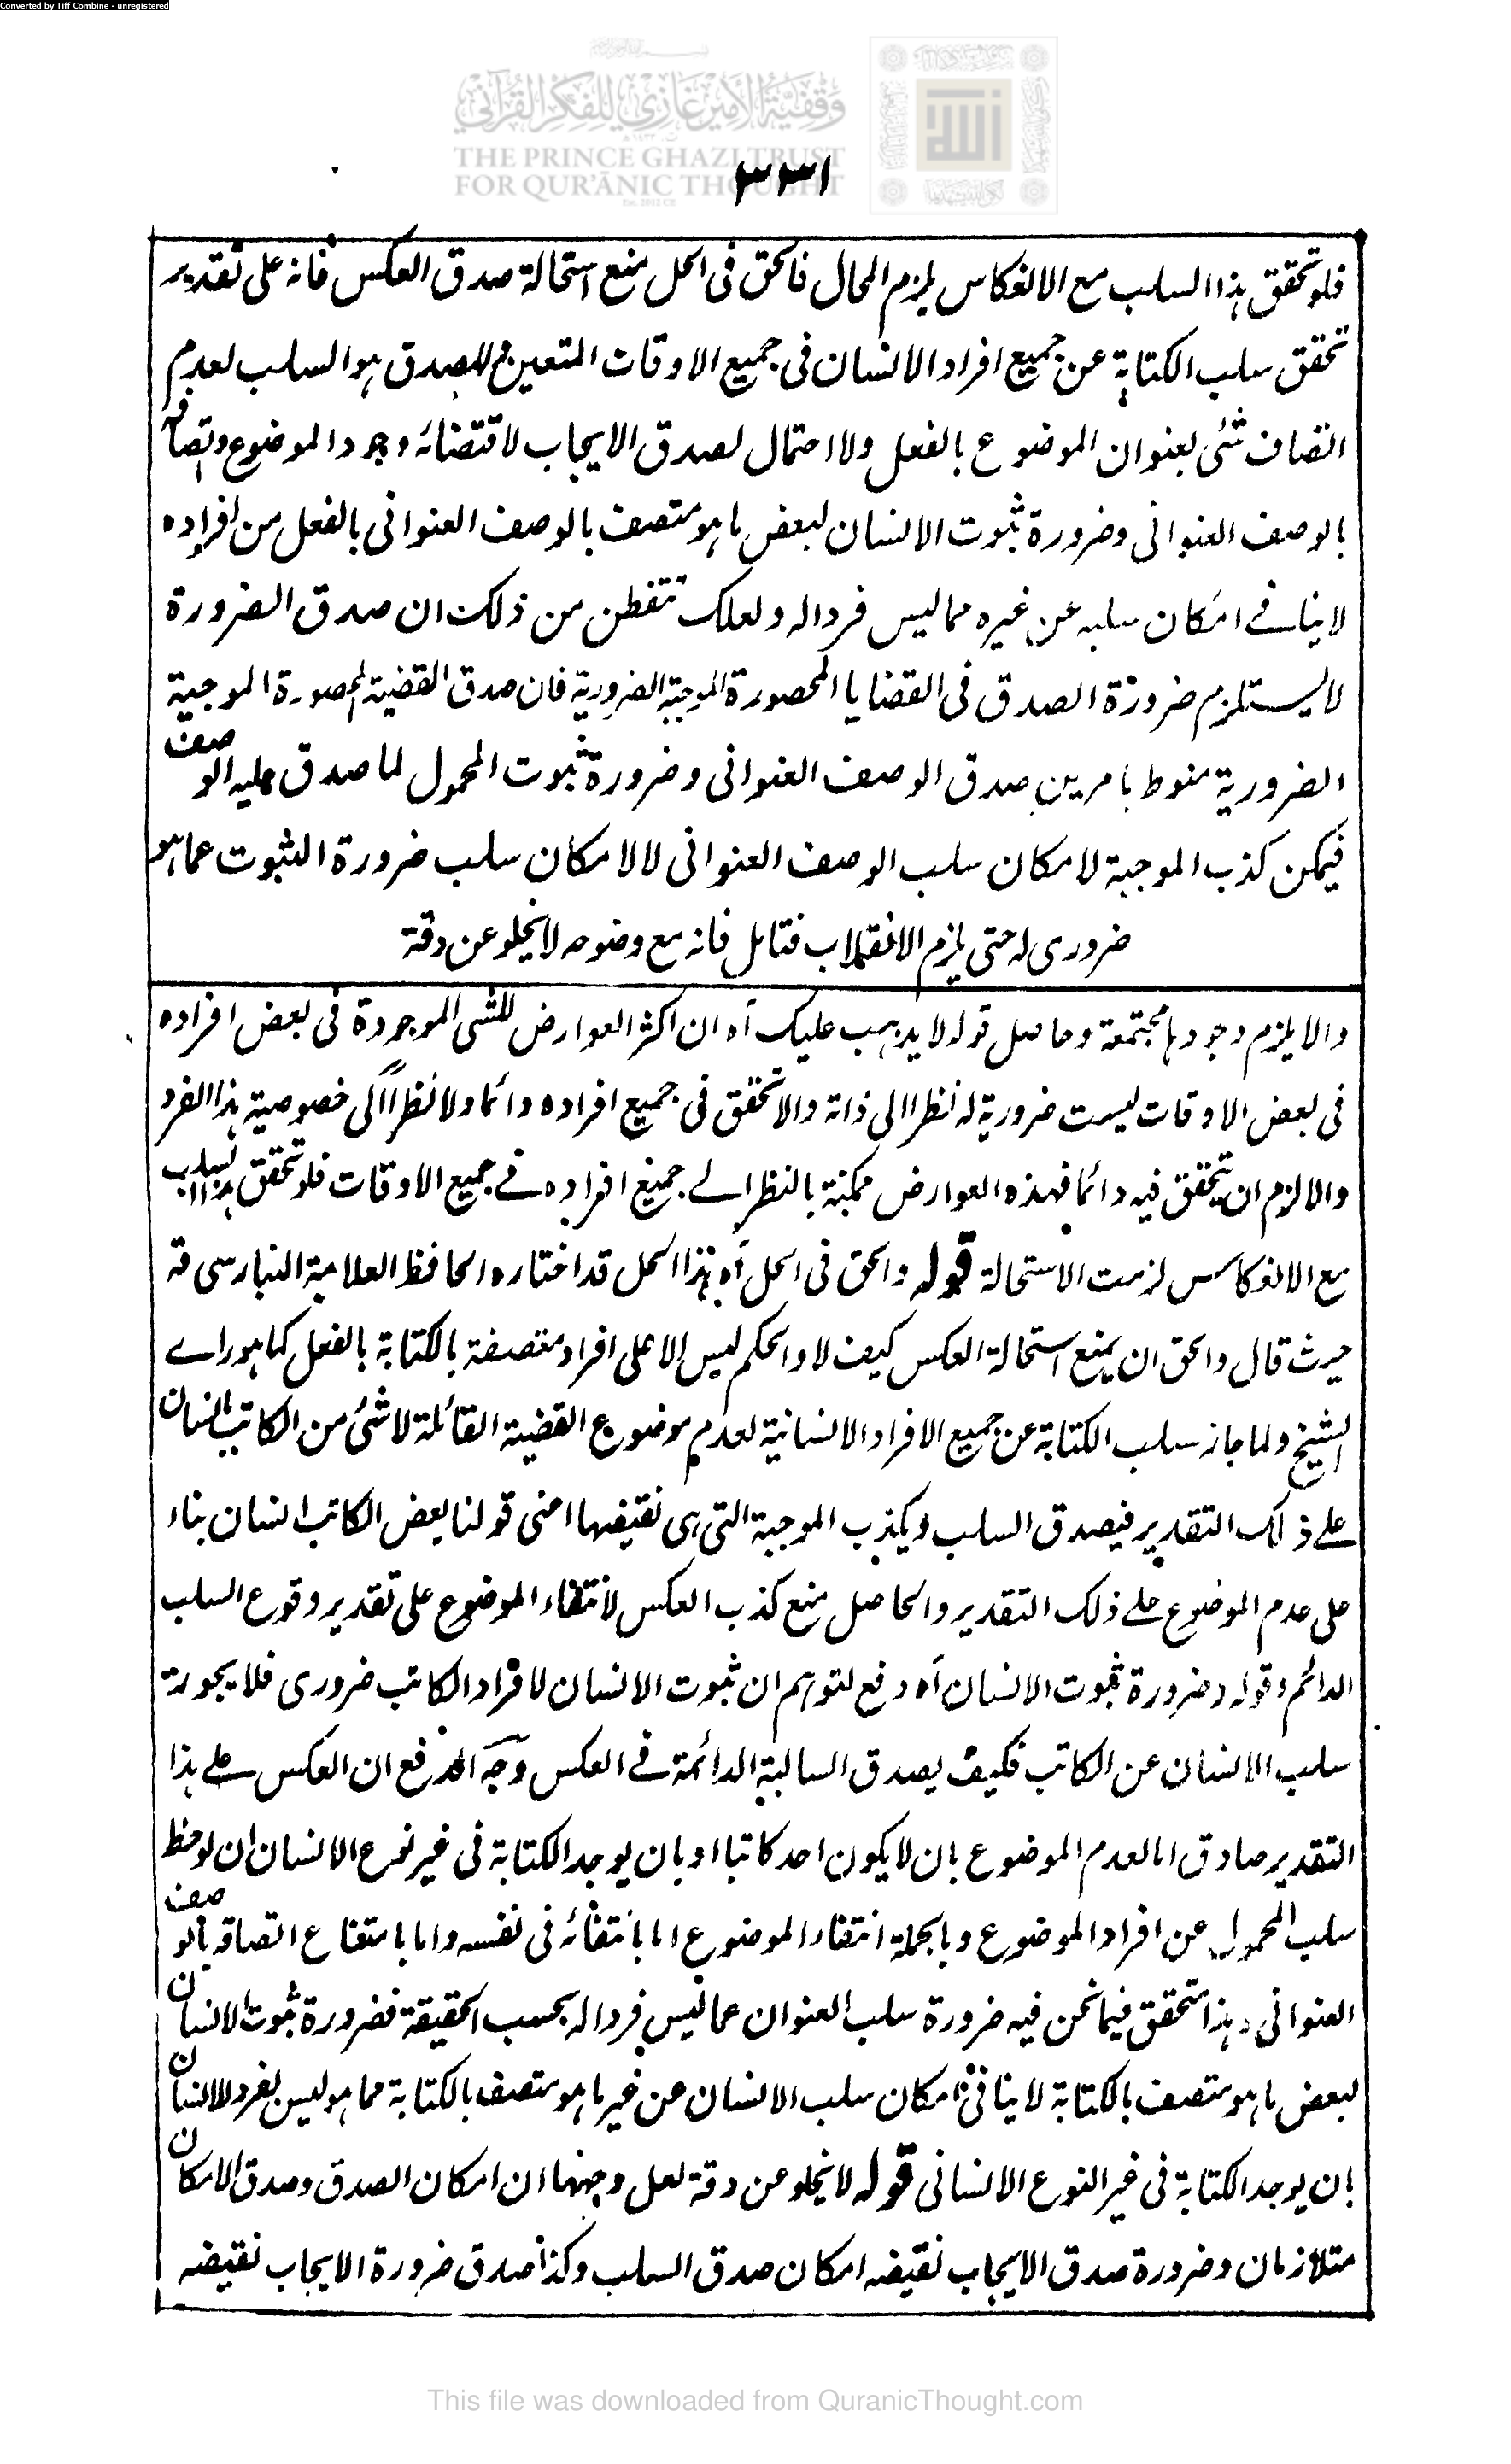 Converted by Tiff Combine - unregistered
وقفية الأمير غازي للفكر القرآني
THE PRINCE GHAZI TRUST
FOR QUR'ĀNIC THOUGHT
٣٣١
فلو تحقق ہذا السلب مع الانعكاس يلزم المحال فالحق فى الحل منع استحالة صدق العكس فانه على تقدير
تحقق سلب الكتابة عن جميع افراد الانسان فى جميع الاوقات المتعين للصدق ہو السلب لعدم
اتصاف شئ بعنوان الموضوع بالفعل ولا احتمال لصدق الايجاب لاقتضائه وجود الموضوع واتصافه
بالوصف العنوانى وضرورة ثبوت الانسان لبعض ما ہو متصف بالوصف العنوانى بالفعل من افراده
لا ينافے امكان سلبه عن غيره مما ليس فردا له ولعلك تتفطن من ذلك ان صدق الضرورة
لا يستلزم ضرورة الصدق فى القضايا المحصورة الموجبة الضرورية فان صدق القضية المحصورة الموجبة
الضرورية منوط بامرين صدق الوصف العنوانى وضرورة ثبوت المحمول لما صدق عليه الوصف
فيمكن كذب الموجبة لامكان سلب الوصف العنوانى لا لامكان سلب ضرورة الثبوت عما ہو
ضرورى له حتى يلزم الانقلاب فتامل فانه مع وضوحه لا يخلو عن دقة
والا يلزم وجودہا مجتمعة وحاصل قوله لا يذہب عليك آه ان اكثر العوارض للشى الموجودة فى بعض افراده
فى بعض الاوقات ليست ضرورية له نظرا الى ذاته والا تحقق فى جميع افراده دائما ولا نظرا الى خصوصية ہذا الفرد
والا لزم ان يتحقق فيه دائما فہذه العوارض ممكنة بالنظر الے جميع افراده فے جميع الاوقات فلو تحقق ہذا السلب
مع الانعكاس لزمت الاستحالة قوله والحق فى الحل آه ہذا الحل قد اختاره الحافظ العلامة البنارسى قه
حيث قال والحق ان يمنع استحالة العكس كيف لا والحكم ليس الا على افراد متصفة بالكتابة بالفعل كما ہو راے
الشيخ ولما جاز سلب الكتابة عن جميع الافراد الانسانية لعدم موضوع القضية القائلة لا شئ من الكاتب بانسان
علے ذلك التقدير فيصدق السلب ويكذب الموجبة التى ہى نقيضها اعنى قولنا بعض الكاتب انسان بناء
على عدم الموضوع علے ذلك التقدير والحاصل منع كذب العكس لانتفاء الموضوع على تقدير وقوع السلب
الدائم وقوله وضرورة ثبوت الانسان آه دفع لتوہم ان ثبوت الانسان لافراد الكاتب ضرورى فلا يجوز
سلب الانسان عن الكاتب فكيف يصدق السالبة الدائمة فے العكس وجه الدفع ان العكس علے ہذا
التقدير صادق اما لعدم الموضوع بان لا يكون احد كاتبا او بان يوجد الكتابة فى غير نوع الانسان ان لوحظ
سلب المحمول عن افراد الموضوع وبالجملة انتفاء الموضوع اما بانتفائه فى نفسه واما بامتناع اتصافه بالوصف
العنوانى وہذا متحقق فيما نحن فيه ضرورة سلب العنوان عما ليس فردا له بحسب الحقيقة فضرورة ثبوت الانسان
لبعض ما ہو متصف بالكتابة لا ينافى امكان سلب الانسان عن غير ما ہو متصف بالكتابة مما ہو ليس بفرد للانسان
بان يوجد الكتابة فى غير النوع الانسانى قوله لا يخلو عن دقة لعل وجهها ان امكان الصدق وصدق الامكان
متلازمان وضرورة صدق الايجاب نقيضه امكان صدق السلب وكذا صدق ضرورة الايجاب نقيضه
This file was downloaded from QuranicThought.com